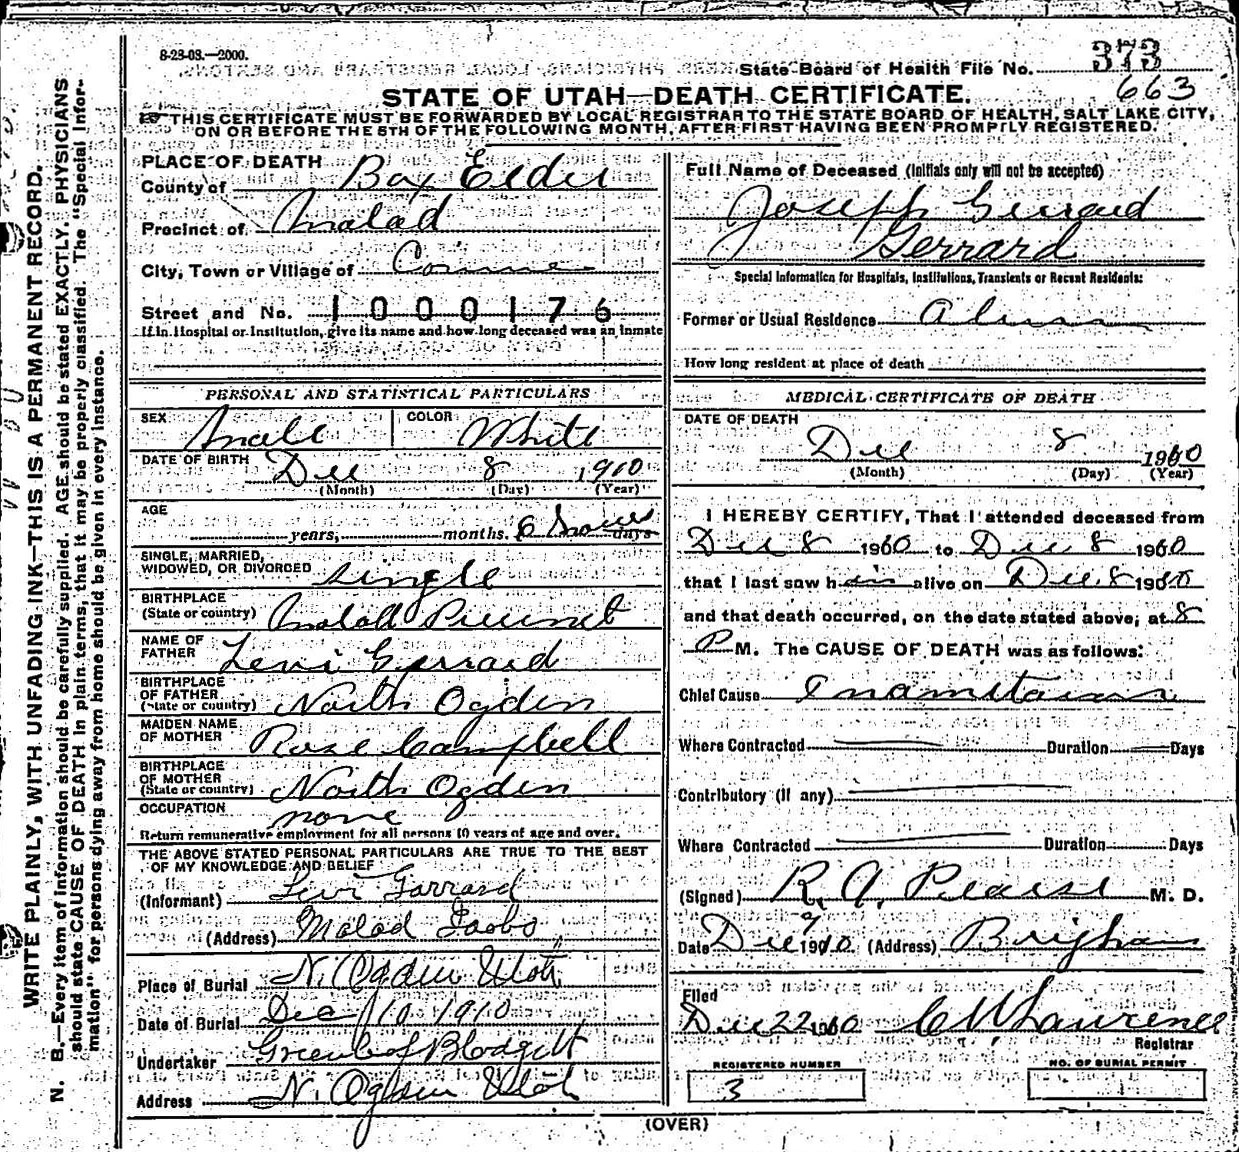 8-23-08.—2000.
State Board of Health File No. 373
663
STATE OF UTAH—DEATH CERTIFICATE.
THIS CERTIFICATE MUST BE FORWARDED BY LOCAL REGISTRAR TO THE STATE BOARD OF HEALTH, SALT LAKE CITY,
ON OR BEFORE THE 5TH OF THE FOLLOWING MONTH, AFTER FIRST HAVING BEEN PROMPTLY REGISTERED.
PLACE OF DEATH
County of Box Elder
Precinct of Malad
City, Town or Village of Corinne
Street and No. 1000176
If in Hospital or Institution, give its name and how long deceased was an inmate
PERSONAL AND STATISTICAL PARTICULARS
SEX Male COLOR White
DATE OF BIRTH Dec 8 1910
(Month) (Day) (Year)
AGE
years, months. 6 hours days
SINGLE, MARRIED,
WIDOWED, OR DIVORCED single
BIRTHPLACE
(State or country) Malad Precinct
NAME OF
FATHER Levi Gerrard
BIRTHPLACE
OF FATHER
(State or country) North Ogden
MAIDEN NAME
OF MOTHER Rose Campbell
BIRTHPLACE
OF MOTHER
(State or country) North Ogden
OCCUPATION none
Return remunerative employment for all persons 10 years of age and over.
THE ABOVE STATED PERSONAL PARTICULARS ARE TRUE TO THE BEST
OF MY KNOWLEDGE AND BELIEF
(Informant) Levi Garrard
(Address) Malad
Place of Burial N. Ogden Utah
Date of Burial Dec 10 1910
Undertaker Greenleaf Blodgett
Address N. Ogden Utah
Full Name of Deceased (Initials only will not be accepted)
Joseph Gerrard
Gerrard
Special Information for Hospitals, Institutions, Transients or Recent Residents:
Former or Usual Residence
How long resident at place of death
MEDICAL CERTIFICATE OF DEATH
DATE OF DEATH
Dec 8 1910
(Month) (Day) (Year)
I HEREBY CERTIFY, That I attended deceased from
Dec 8 1910 to Dec 8 1910
that I last saw him alive on Dec. 8 1910
and that death occurred, on the date stated above, at 8
P M. The CAUSE OF DEATH was as follows:
Chief Cause
Where Contracted Duration Days
Contributory (if any)
Where Contracted Duration Days
(Signed) R. A. Pearse M. D.
Date Dec 9 1910 (Address) Brigham
Filed
Dec 22 1910 C W Lawrence
Registrar
REGISTERED NUMBER
3
NO. OF BURIAL PERMIT
1
(OVER)
WRITE PLAINLY, WITH UNFADING INK—THIS IS A PERMANENT RECORD.
N. B.—Every item of information should be carefully supplied. AGE should be stated EXACTLY. PHYSICIANS
should state CAUSE OF DEATH in plain terms, that it may be properly classified. The "Special Infor-
mation" for persons dying away from home should be given in every instance.